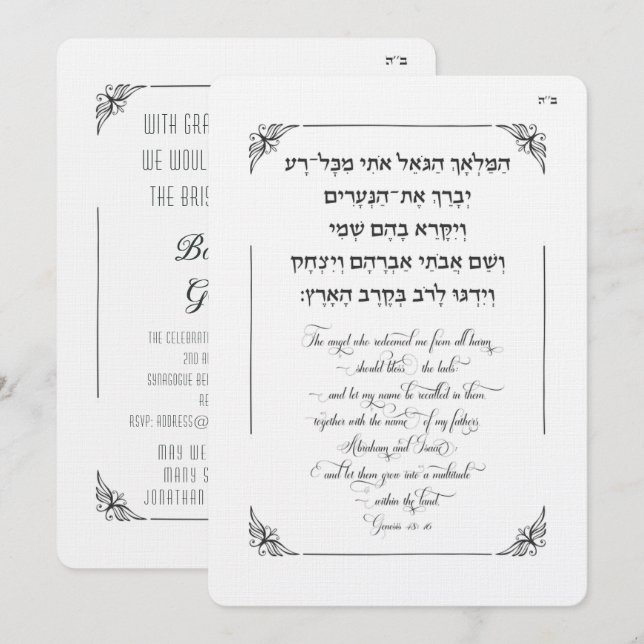 ב״ה
WITH GRA
WE WOUL
THE BRIS
Ba
G
THE CELEBRAT
2ND A
SYNAGOGUE BE
RE
RSVP: ADDRESS@
MAY WE
MANY S
JONATHAN
ב״ה
הַמַּלְאָךְ הַגֹּאֵל אֹתִי מִכָּל־רָע
יְבָרֵךְ אֶת־הַנְּעָרִים
וְיִקָּרֵא בָהֶם שְׁמִי
וְשֵׁם אֲבֹתַי אַבְרָהָם וְיִצְחָק
וְיִדְגּוּ לָרֹב בְּקֶרֶב הָאָרֶץ׃
The angel who redeemed me from all harm
should bless the lads;
and let my name be recalled in them,
together with the name of my fathers,
Abraham and Isaac;
and let them grow into a multitude
within the land.
Genesis 48: 16